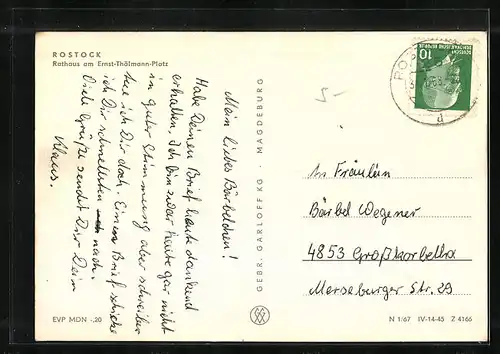 ROSTOCK
Rathaus am Ernst-Thälmann-Platz
Mein liebes Bärbelchen!
Habe Deinen Brief heute dankend
erhalten. Ich bin zwar heute gar nicht
in guter Stimmung aber schreiben
tue ich Dir doch. Einen Brief schicke
ich Dir schnellstens nach.
Viele Grüße sendet Dir Dein
Klaus.
EVP MDN -.20
GEBR. GARLOFF KG · MAGDEBURG
10
DEUTSCHE
DEMOKRATISCHE REPUBLIK
ROS
d
An Fräulein
Bärbel Wegener
4853 Großkorbetha
Merseburger Str. 29
N 1/67 IV-14-45 Z 4166